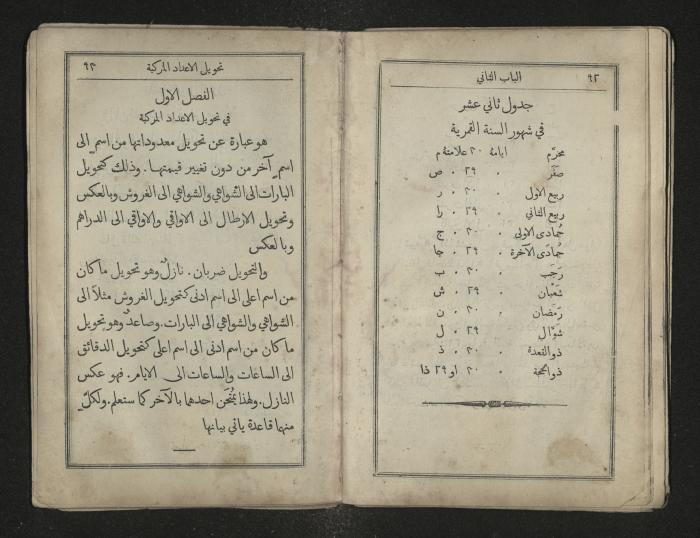 ٩٢ الباب الثاني
جدول ثاني عشر
في شهور السنة القمرية
محرّم ايامهُ ٣٠ علامتهُ م
صفَر ٠ ٢٩ ٠ ص
ربيع الاول ٠ ٣٠ ٠ ر
ربيع الثاني ٠ ٢٩ ٠ را
جُمادى الاولى ٠ ٣٠ ٠ ج
جُمادَى الآخرة ٠ ٢٩ ٠ جا
رَجَب ٠ ٣٠ ٠ ب
شَعْبان ٠ ٢٩ ٠ ش
رَمَضان ٠ ٣٠ ٠ ن
شوّال ٠ ٢٩ ٠ ل
ذو القعدة ٠ ٣٠ ٠ ذ
ذو الحجة ٠ ٣٠ او ٢٩ ذا
تحويل الاعداد المركبة ٩٣
الفصل الاول
في تحويل الاعداد المركبة
هو عبارة عن تحويل معدوداتها من اسمٍ الى
اسمٍ آخر من دون تغيير قيمتها. وذلك كتحويل
البارات الى الشواهي والشواهي الى الغروش وبالعكس
وتحويل الارطال الى الاواقي والاواقي الى الدراهم
وبالعكس
والتحويل ضربان. نازلٌ وهو تحويل ما كان
من اسم اعلى الى اسم ادنى كتحويل الغروش مثلاً الى
الشواهي والشواهي الى البارات. وصاعدٌ وهو تحويل
ما كان من اسم ادنى الى اسم اعلى كتحويل الدقائق
الى الساعات والساعات الى الايام. فهو عكس
النازل. ولهذا يُمتحَن احدهما بالآخر كما ستعلم. ولكلٍّ
منها قاعدة ياتي بيانها